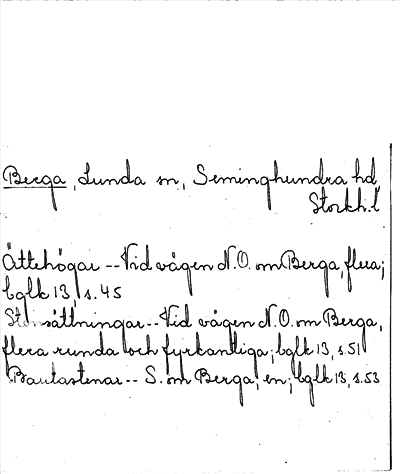 Berga, Lunda sn, Seminghundra hd,
Stockh.l
Ättehögar -- Vid vägen N.O. om Berga, flera;
bglk 13, s. 45
Stensättningar -- Vid vägen N.O. om Berga,
flera runda och fyrkantiga; bglk 13, s. 51
Bautastenar -- S. om Berga, en; bglk 13, s. 53